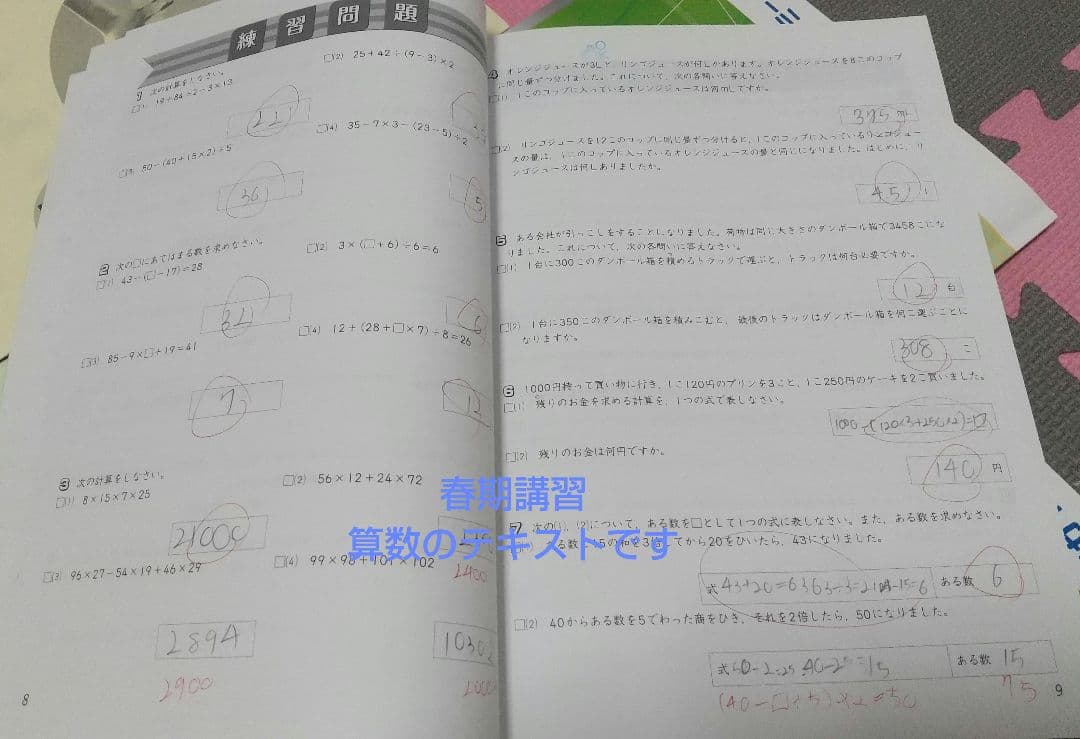 練習問題
1 次の計算をしなさい。
□(1) 19+84÷2-3×13
21
□(2) 25+42÷(9-3)×2
□(3) 80-(40+15×2)÷5
36
□(4) 35-7×3-(23-5)÷2
5
2 次の□にあてはまる数を求めなさい。
□(1) 43-(□-17)=28
32
□(2) 3×(□+6)÷6=6
6
□(3) 85-9×□+19=41
7
□(4) 12+(28+□×7)÷8=26
12
3 次の計算をしなさい。
□(1) 8×15×7×25
21000
□(2) 56×12+24×72
2400
□(3) 96×27-54×19+46×29
2894
2900
□(4) 99×98+101×102
8
4 オレンジジュースが3Lと、リンゴジュースが何Lかあります。オレンジジュースを8このコップ
に同じ量ずつ分けました。これについて、次の各問いに答えなさい。
□(1) 1このコップに入っているオレンジジュースは何mLですか。
375 mL
□(2) リンゴジュースを12このコップに同じ量ずつ分けると、1このコップに入っているリンゴジュー
スの量は、1このコップに入っているオレンジジュースの量と同じになりました。はじめに、リ
ンゴジュースは何Lありましたか。
4.5 L
5 ある会社が引っこしをすることになりました。荷物は同じ大きさのダンボール箱で3458こにな
りました。これについて、次の各問いに答えなさい。
□(1) 1台に300このダンボール箱を積めるトラックで運ぶと、トラックは何台必要ですか。
12 台
□(2) 1台に350このダンボール箱を積みこむと、最後のトラックはダンボール箱を何こ運ぶことに
なりますか。
308 こ
6 1000円持って買い物に行き、1こ120円のプリンを3こと、1こ250円のケーキを2こ買いました。
□(1) 残りのお金を求める計算を、1つの式で表しなさい。
1000-(120×3+250×2)=
□(2) 残りのお金は何円ですか。
140 円
春期講習
算数のテキストです
7 次の(1)、(2)について、ある数を□として1つの式に表しなさい。また、ある数を求めなさい。
ある数と15の和を3倍してから20をひいたら、43になりました。
式 43+20=63 63÷3=21 21-15=6 ある数 6
□(2) 40からある数を5でわった商をひき、それを2倍したら、50になりました。
ある数 15
(40-□÷5)×2=50
75
9